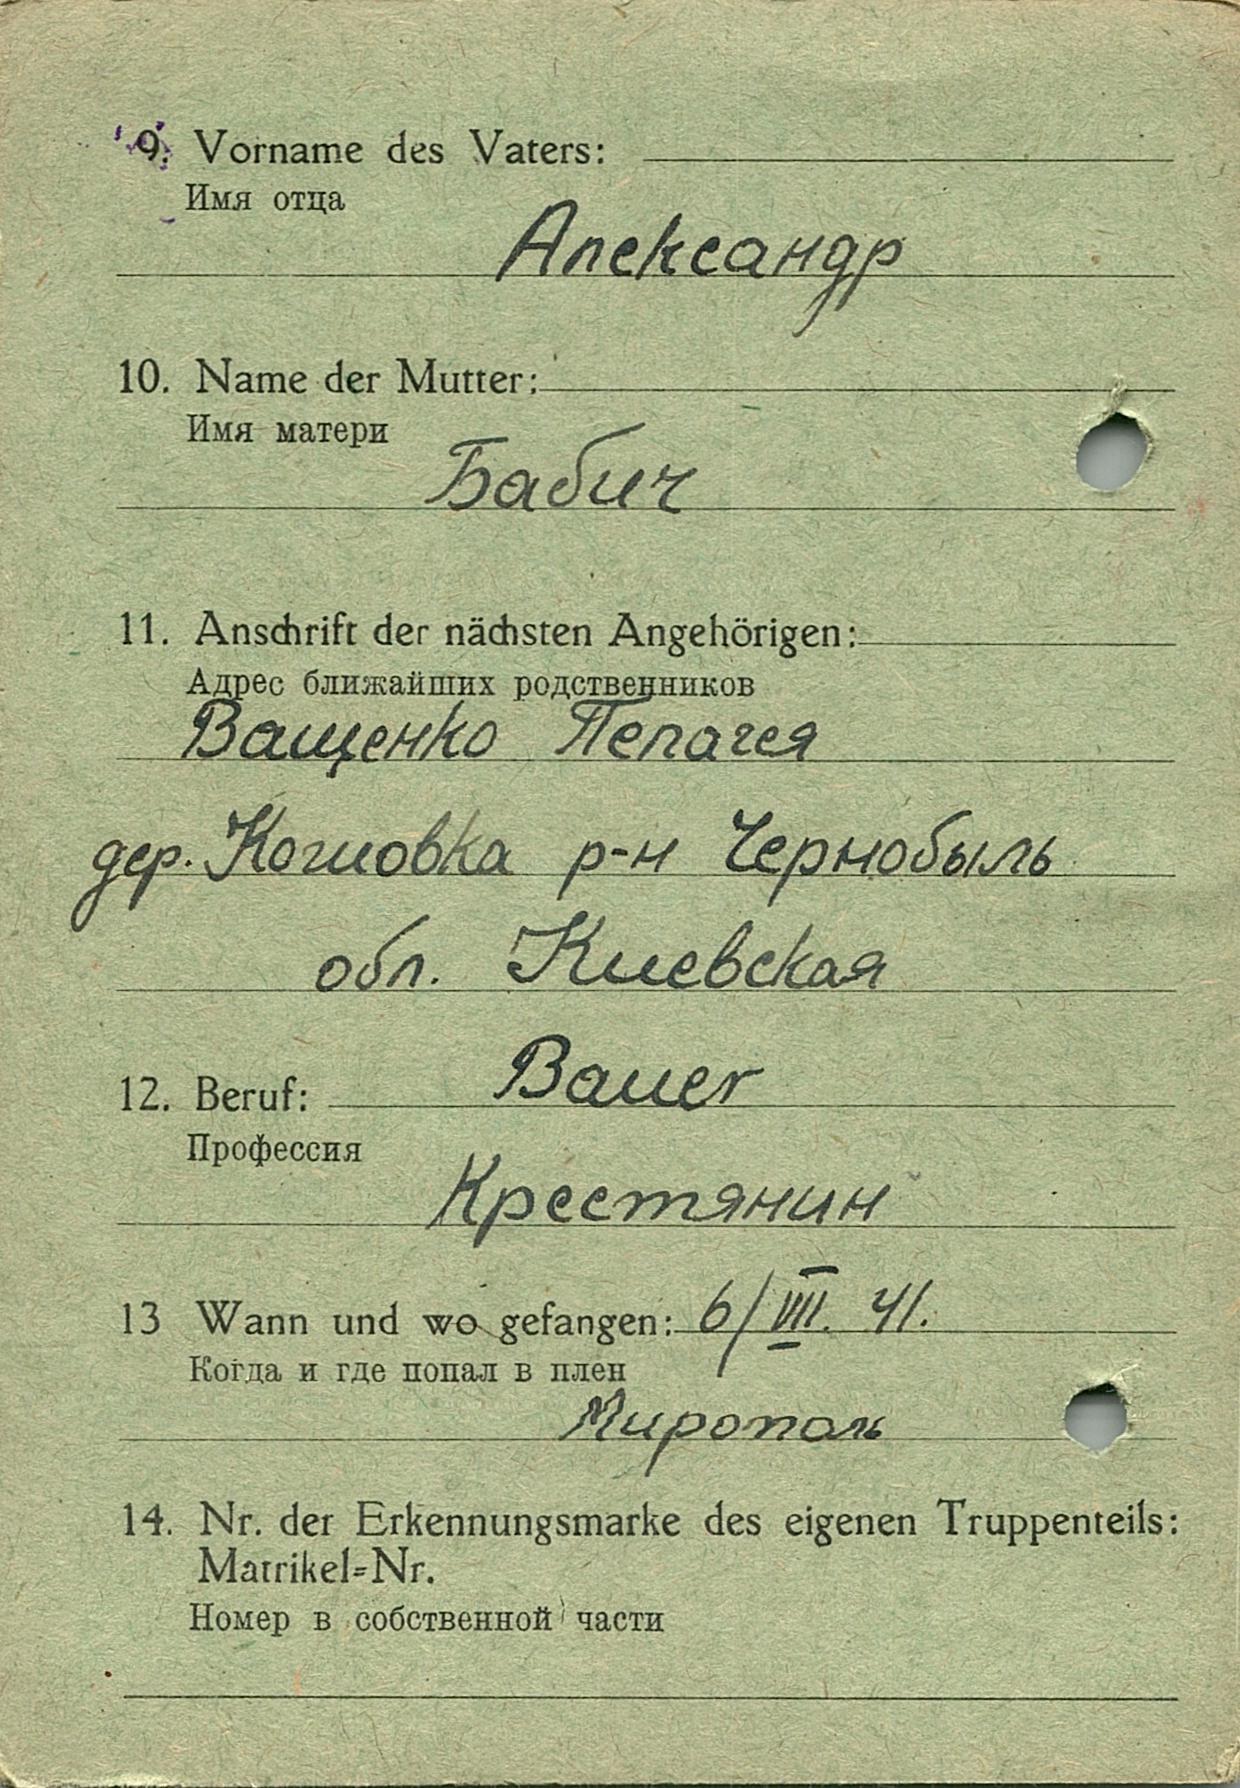 9. Vorname des Vaters:
Имя отца
Александр
10. Name der Mutter:
Имя матери
Бабич
11. Anschrift der nächsten Angehörigen:
Адрес ближайших родственников
Ващенко Пелагея
дер. Когшовка р-н Чернобыль
обл. Киевская
12. Beruf: Bauer
Профессия
Крестянин
13 Wann und wo gefangen: 6/VIII. 41.
Когда и где попал в плен
Мирополь
14. Nr. der Erkennungsmarke des eigenen Truppenteils:
Matrikel=Nr.
Номер в собственной части